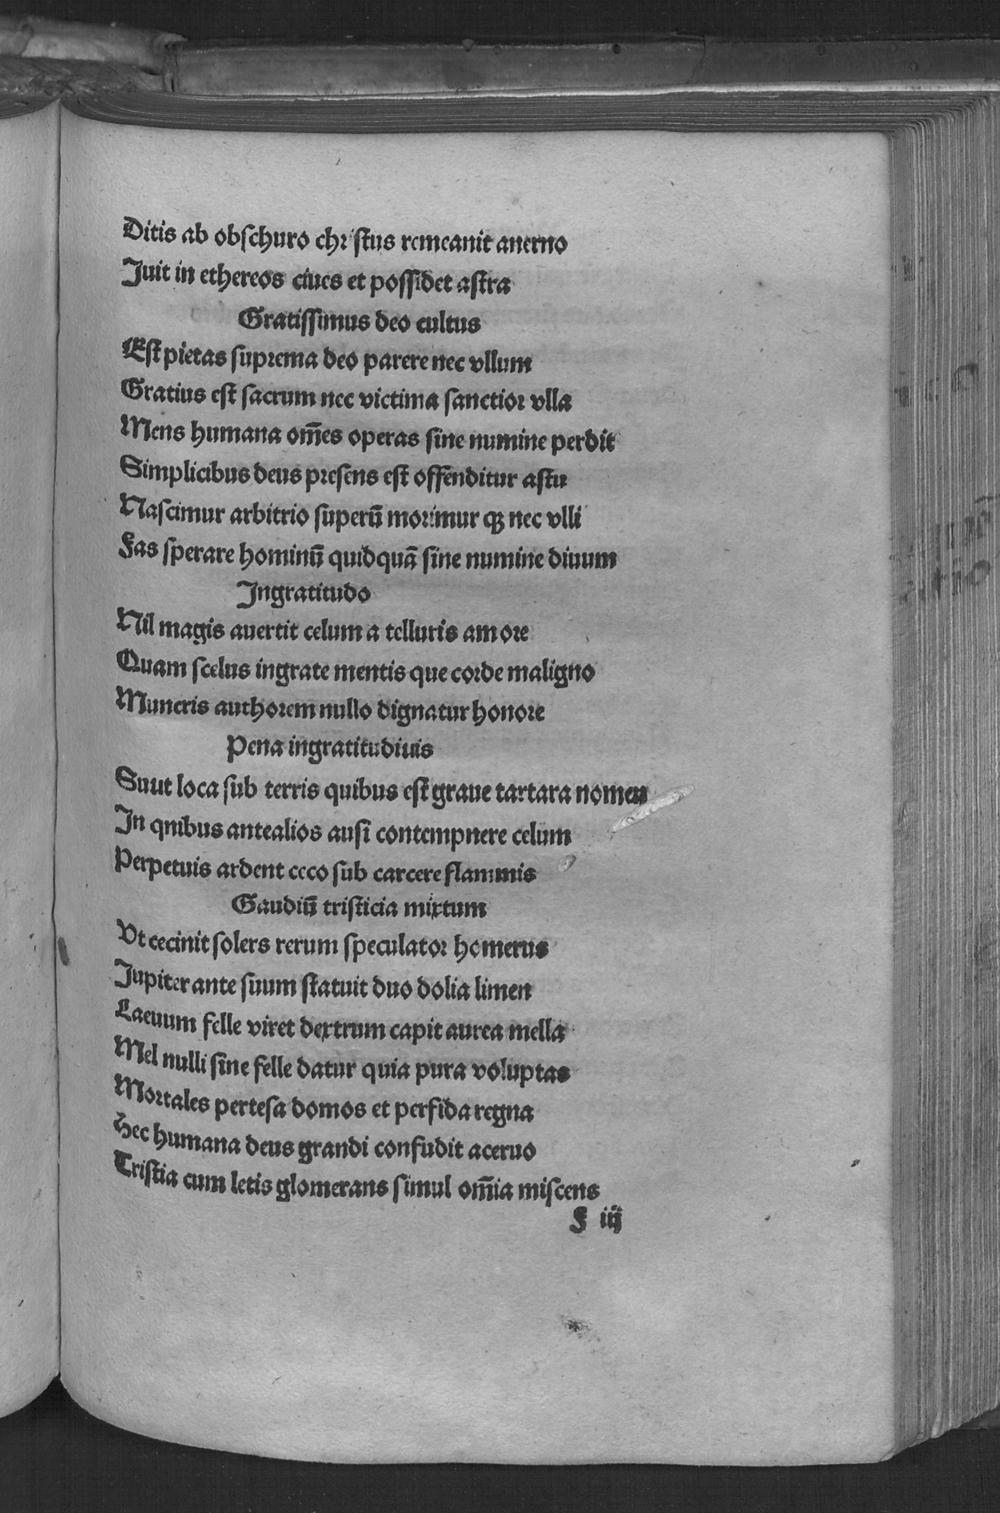 Ditis ab obschuro christus remeanit anerno
Iuit in ethereos ciues et possidet astra
Gratissimus deo cultus
Est pietas suprema deo parere nec vllum
Gratius est sacrum nec victima sanctior vlla
Mens humana om̄es operas sine numine perdit
Simplicibus deus presens est offenditur astu
Nascimur arbitrio superū morimur qꝫ nec vlli
Fas sperare hominū quidquā sine numine diuum
Ingratitudo
Nil magis auertit celum a telluris amore
Quam scelus ingrate mentis que corde maligno
Muneris authorem nullo dignatur honore
Pena ingratitudiuis
Suut loca sub terris quibus est graue tartara nomen
In qnibus antealios ausi contempnere celum
Perpetuis ardent ceco sub carcere flammis
Gaudiū tristicia mixtum
Vt cecinit solers rerum speculator homerus
Iupiter ante suum statuit duo dolia limen
Laeuum felle viret dextrum capit aurea mella
Mel nulli sine felle datur quia pura voluptas
Mortales pertesa domos et perfida regna
Hec humana deus grandi confudit aceruo
Tristia cum letis glomerans simul om̄ia miscens
F iij